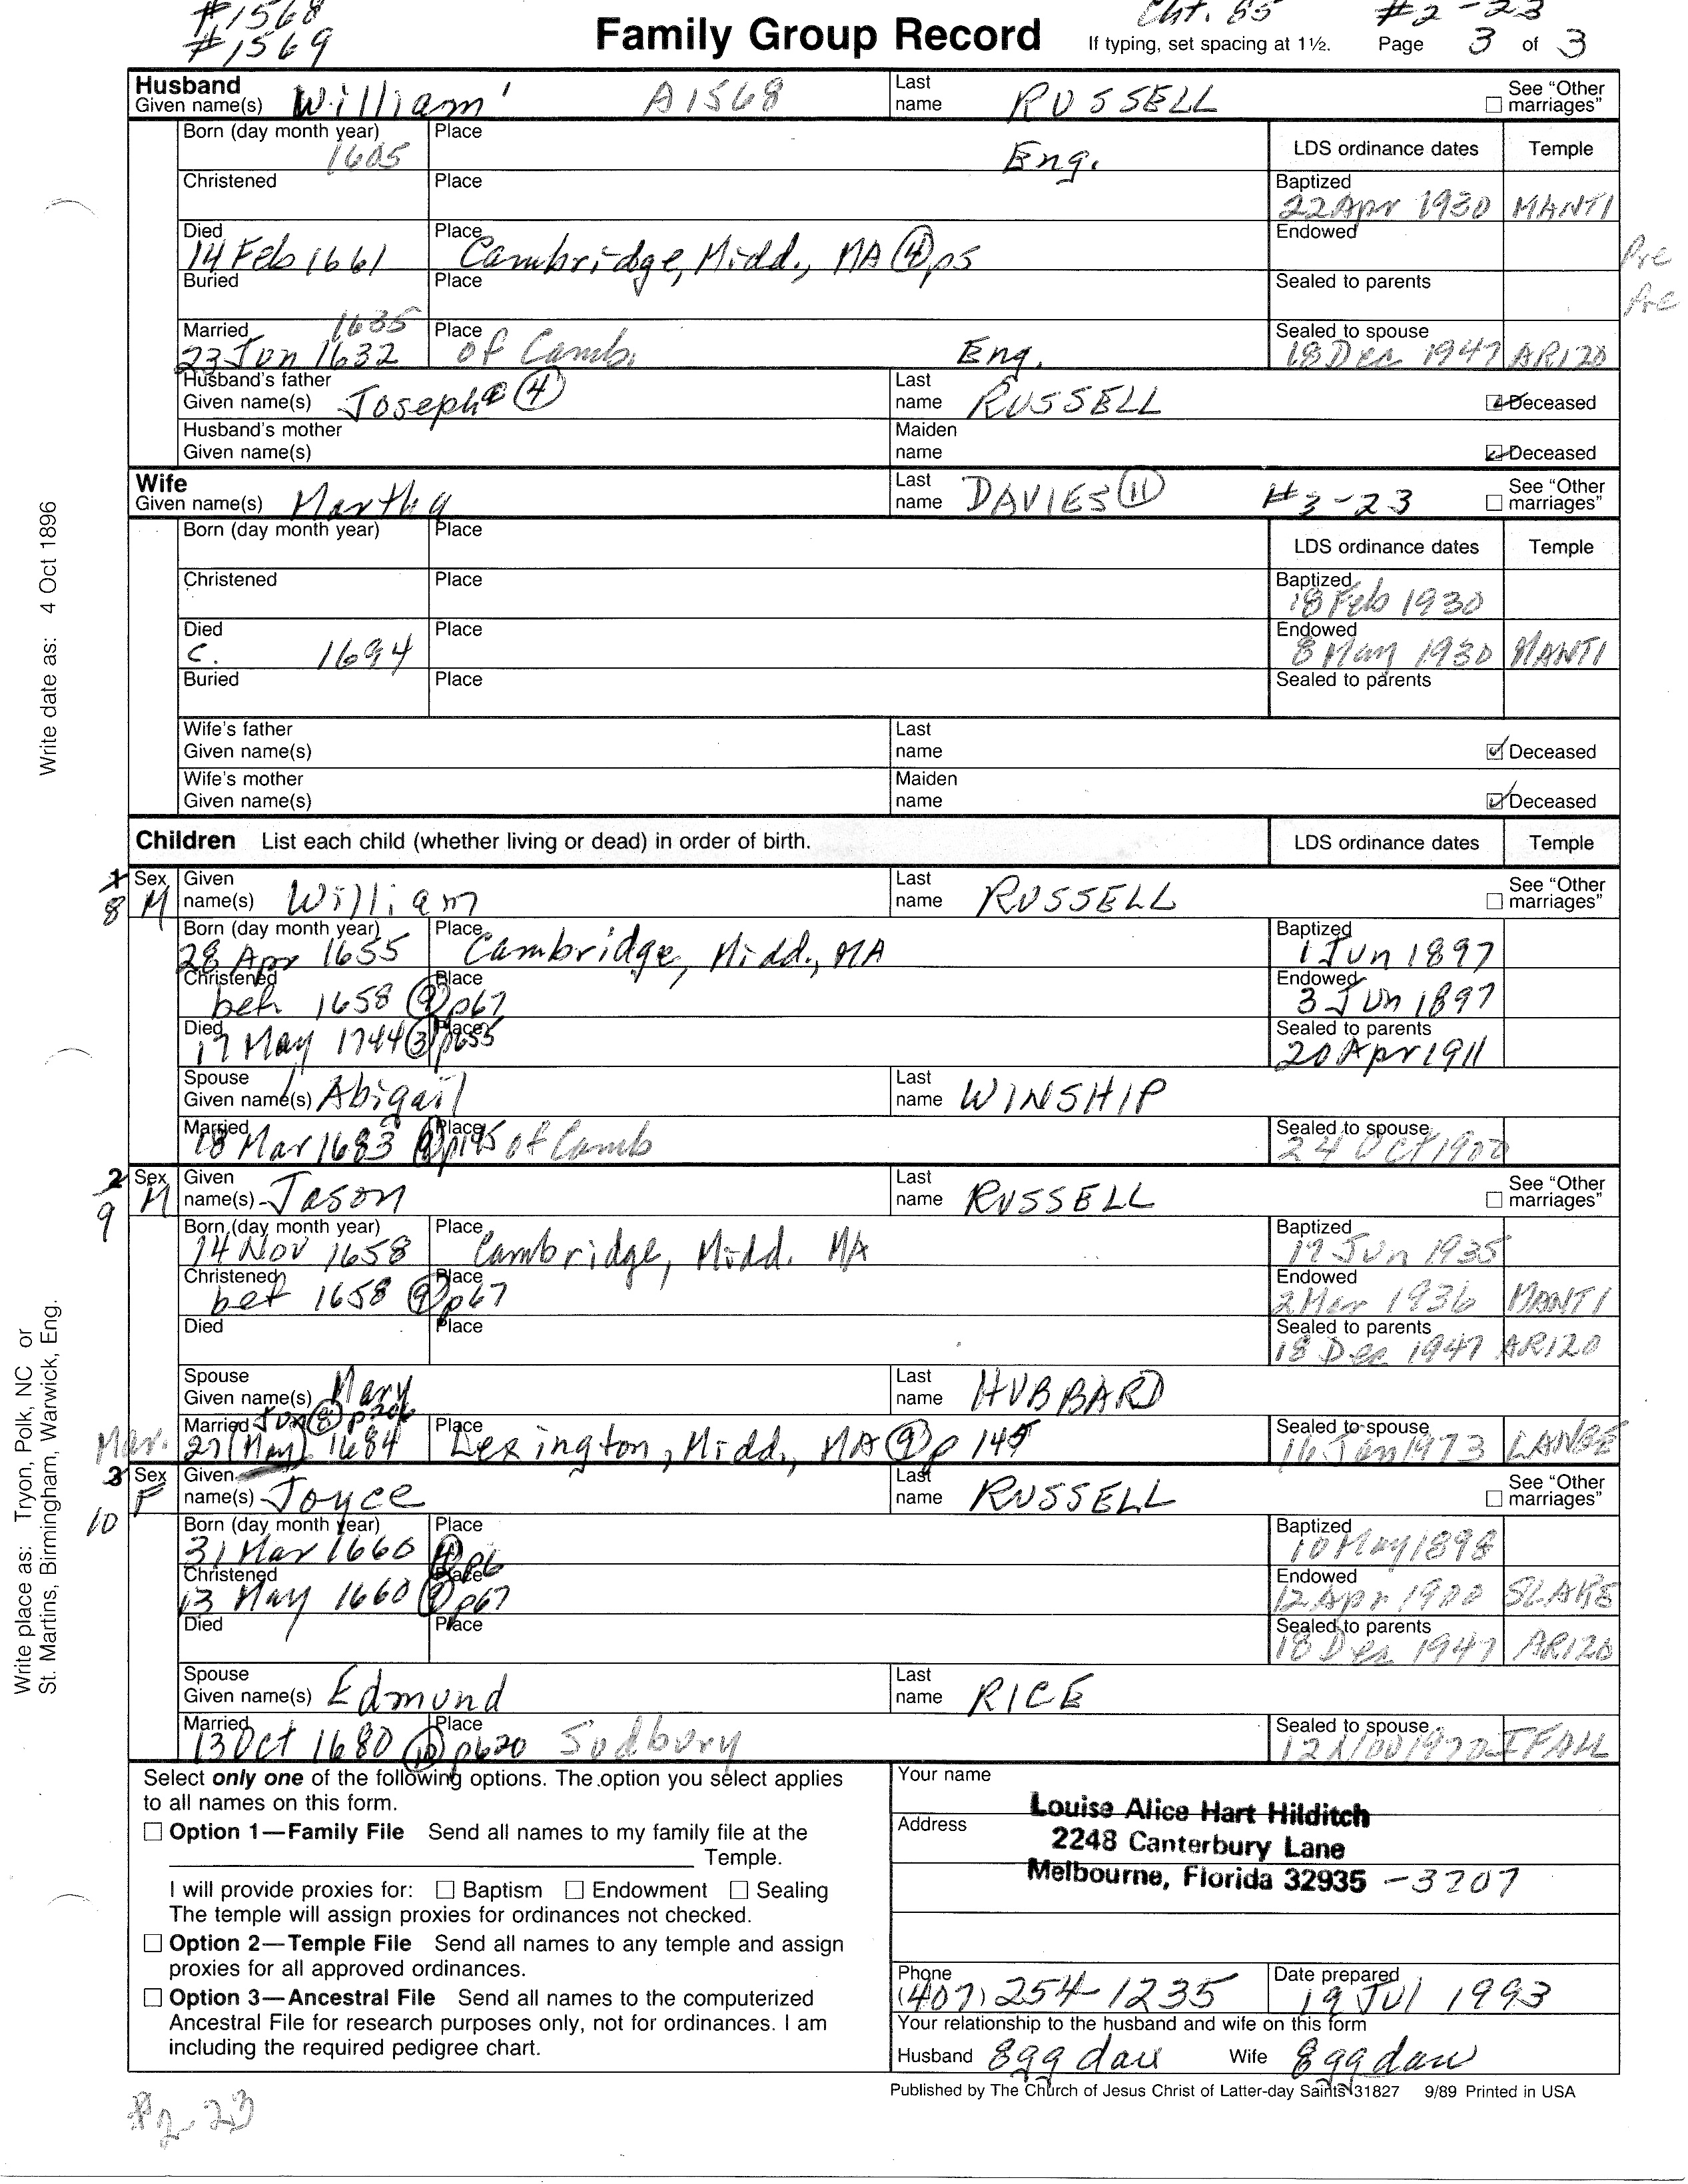 #1568
#1569
Family Group Record
Cht. 65 #2-23
If typing, set spacing at 1½. Page 3 of 3
Husband
Given name(s) William A1568 Last name RUSSELL See "Other marriages"
Born (day month year) 1605 Place Eng. LDS ordinance dates Temple
Christened Place Baptized 22 Apr 1930 MANTI
Died 14 Feb 1661 Place Cambridge, Midd., MA (4) p5 Endowed
Pre
Buried Place Sealed to parents
Married 1635 23 Jun 1632 Place of Camb. Eng. Sealed to spouse 18 Dec 1947 ARIZO
Husband's father
Given name(s) Joseph (4) Last name RUSSELL Deceased
Husband's mother
Given name(s) Maiden name Deceased
Wife
Given name(s) Martha Last name DAVIES (11) #3-23 See "Other marriages"
Born (day month year) Place LDS ordinance dates Temple
Christened Place Baptized 18 Feb 1930
Died c. 1694 Place Endowed 8 May 1930 MANTI
Buried Place Sealed to parents
Wife's father
Given name(s) Last name Deceased
Wife's mother
Given name(s) Maiden name Deceased
Children List each child (whether living or dead) in order of birth. LDS ordinance dates Temple
1 8 Sex M Given name(s) William Last name RUSSELL See "Other marriages"
Born (day month year) 28 Apr 1655 Place Cambridge, Midd., MA Baptized 1 Jun 1897
Christened 1658 (9) p67 Place Endowed 3 Jun 1897
Died 17 May 1744 (3) p655 Place Sealed to parents 20 Apr 1911
Spouse
Given name(s) Abigail Last name WINSHIP
Married 18 Mar 1683 Place of Camb Sealed to spouse 24 Oct 1900
2 9 Sex M Given name(s) Jason Last name RUSSELL See "Other marriages"
Born (day month year) 14 Nov 1658 Place Cambridge, Midd. MA Baptized 17 Jun 1935
Christened bef 1658 (9) p67 Place Endowed 2 Mar 1936 MANTI
Died Place Sealed to parents 18 Dec 1947 ARIZO
Spouse
Given name(s) Mary Last name HUBBARD
Mar. Married Jun (8) p206 27 (May) 1684 Place Lexington, Midd., MA (9) p 145 Sealed to spouse 16 Jan 1973 LANGE
3 10 Sex F Given name(s) Joyce Last name RUSSELL See "Other marriages"
Born (day month year) 31 Mar 1660 (4) p6 Place Baptized 10 May 1898
Christened 13 May 1660 (9) p67 Place Endowed 12 Apr 1900 SLAKE
Died Place Sealed to parents 18 Dec 1947 ARIZO
Spouse
Given name(s) Edmund Last name RICE
Married 13 Oct 1680 (10) p620 Place Sudbury Sealed to spouse 12 Nov 1970 IFALL
Select only one of the following options. The option you select applies
to all names on this form.
Option 1—Family File Send all names to my family file at the
Temple.
I will provide proxies for: Baptism Endowment Sealing
The temple will assign proxies for ordinances not checked.
Option 2—Temple File Send all names to any temple and assign
proxies for all approved ordinances.
Option 3—Ancestral File Send all names to the computerized
Ancestral File for research purposes only, not for ordinances. I am
including the required pedigree chart.
Your name
Louise Alice Hart Hilditch
Address
2248 Canterbury Lane
Melbourne, Florida 32935 -3207
Phone (407) 254-1235 Date prepared 19 Jul 1993
Your relationship to the husband and wife on this form
Husband 8gg dau Wife 8gg dau
Published by The Church of Jesus Christ of Latter-day Saints 31827 9/89 Printed in USA
#2-23
Write date as: 4 Oct 1896
Write place as: Tryon, Polk, NC or
St. Martins, Birmingham, Warwick, Eng.